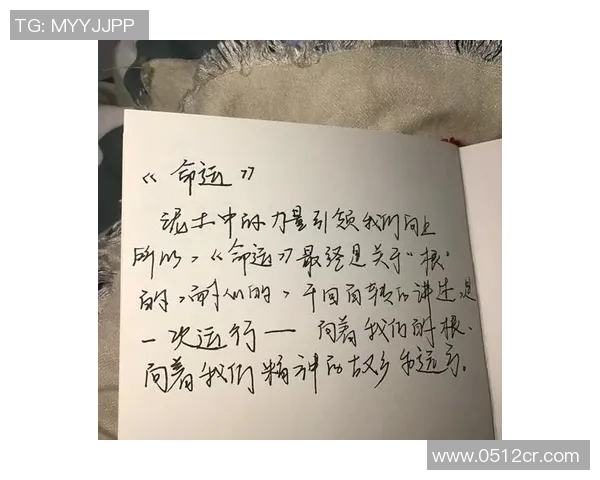 TG: MYYJJPP
《命运》
泥土中的力量引领我们向上
所以、《命运》最终是关于“根”
的、耐人的、千回百转的讲述,是
一次运行— 向着我们的根、
向着我们精神的故乡的运行。
www.0512cr.com